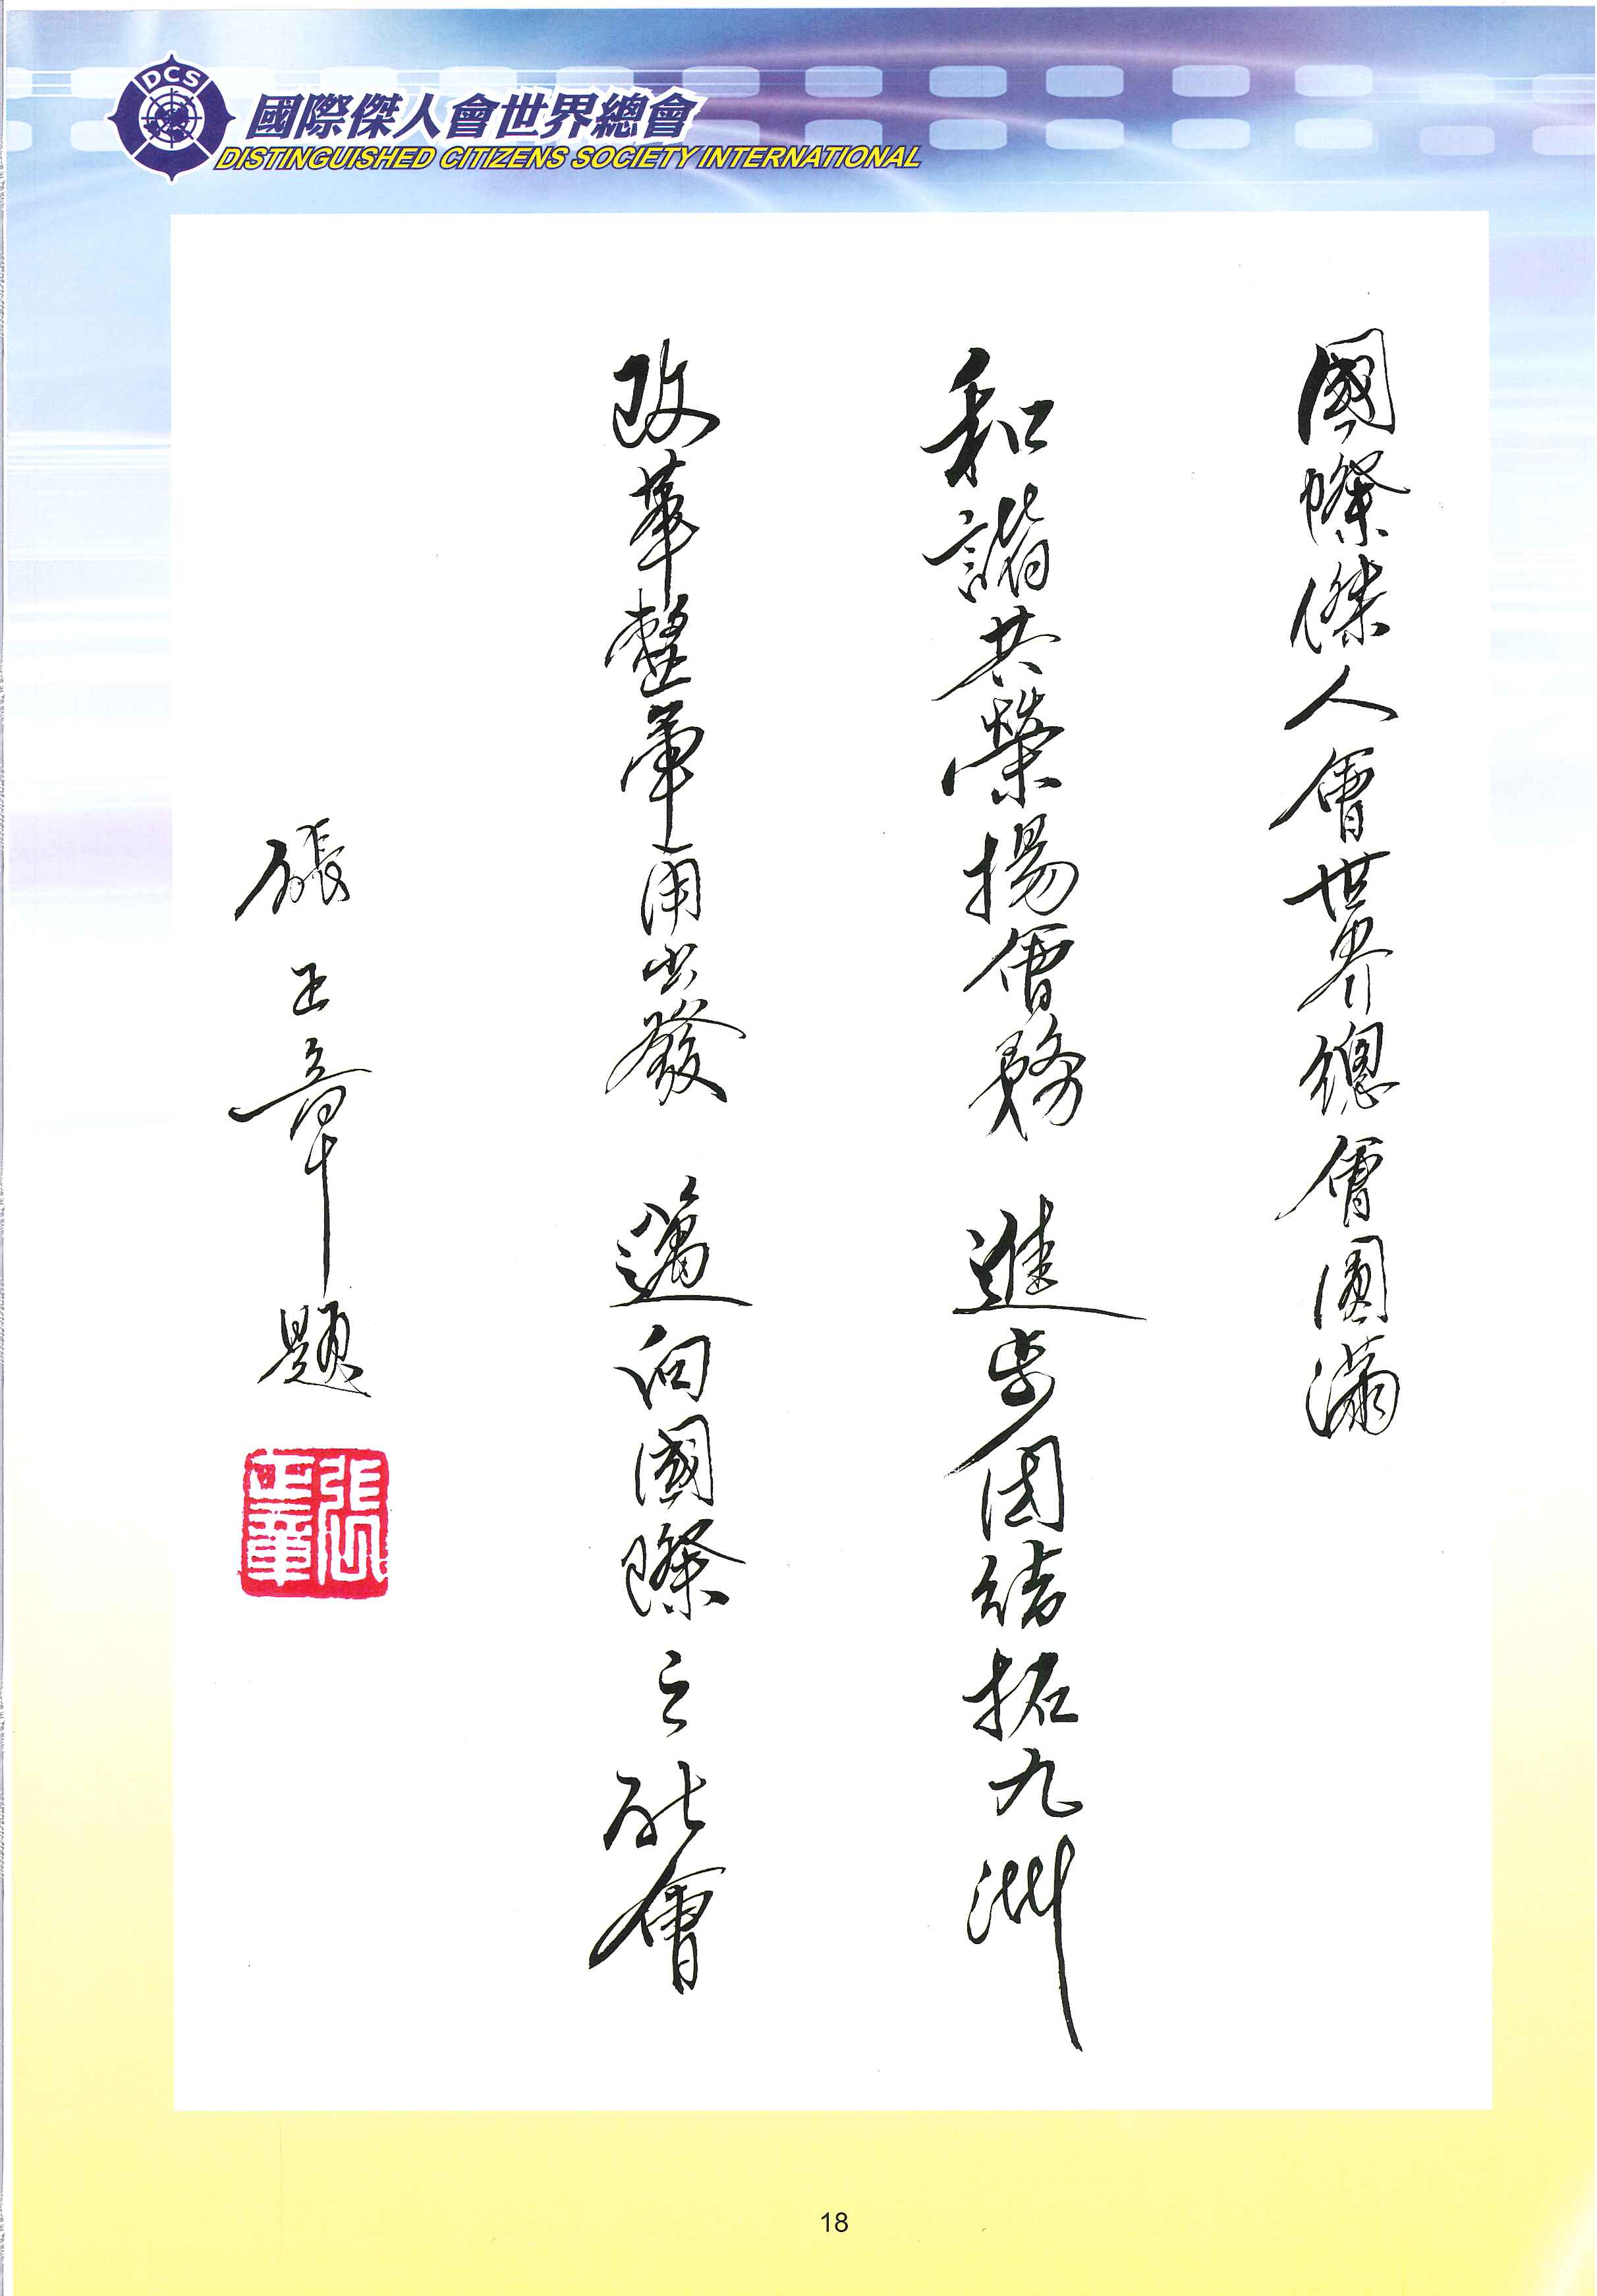 DCS
國際傑人會世界總會
DISTINGUISHED CITIZENS SOCIETY INTERNATIONAL
國際傑人會世界總會圓滿
和諧共榮揚會務 進步團結拓九洲
改革整軍再出發 邁向國際之社會
張正章題
張正章
18